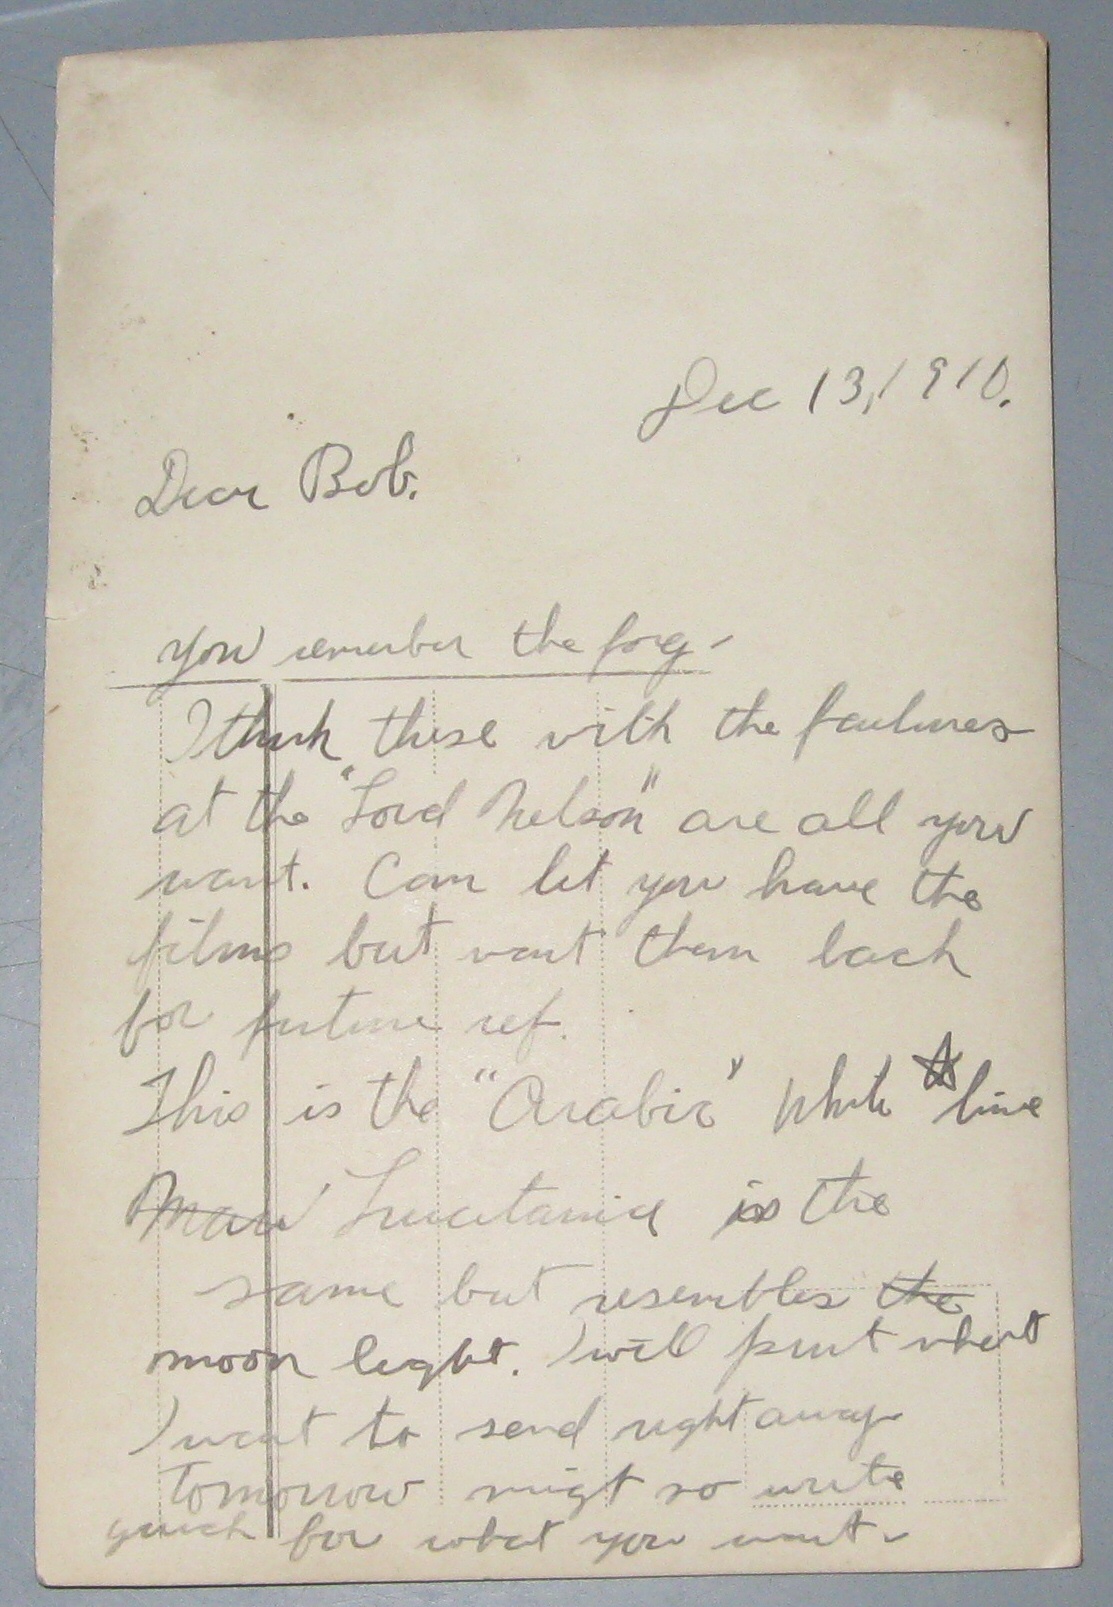 Dec 13, 1910.
Dear Bob.
You remember the fog-
I think these with the failures
at the "Lord Nelson" are all you
want. Can let you have the
films but want them back
for future ref.
This is the "Arabic" White line
Lucitania is the
same but resembles the
moon light. I will print what
I want to send right away
tomorrow night so write
quick for what you want-